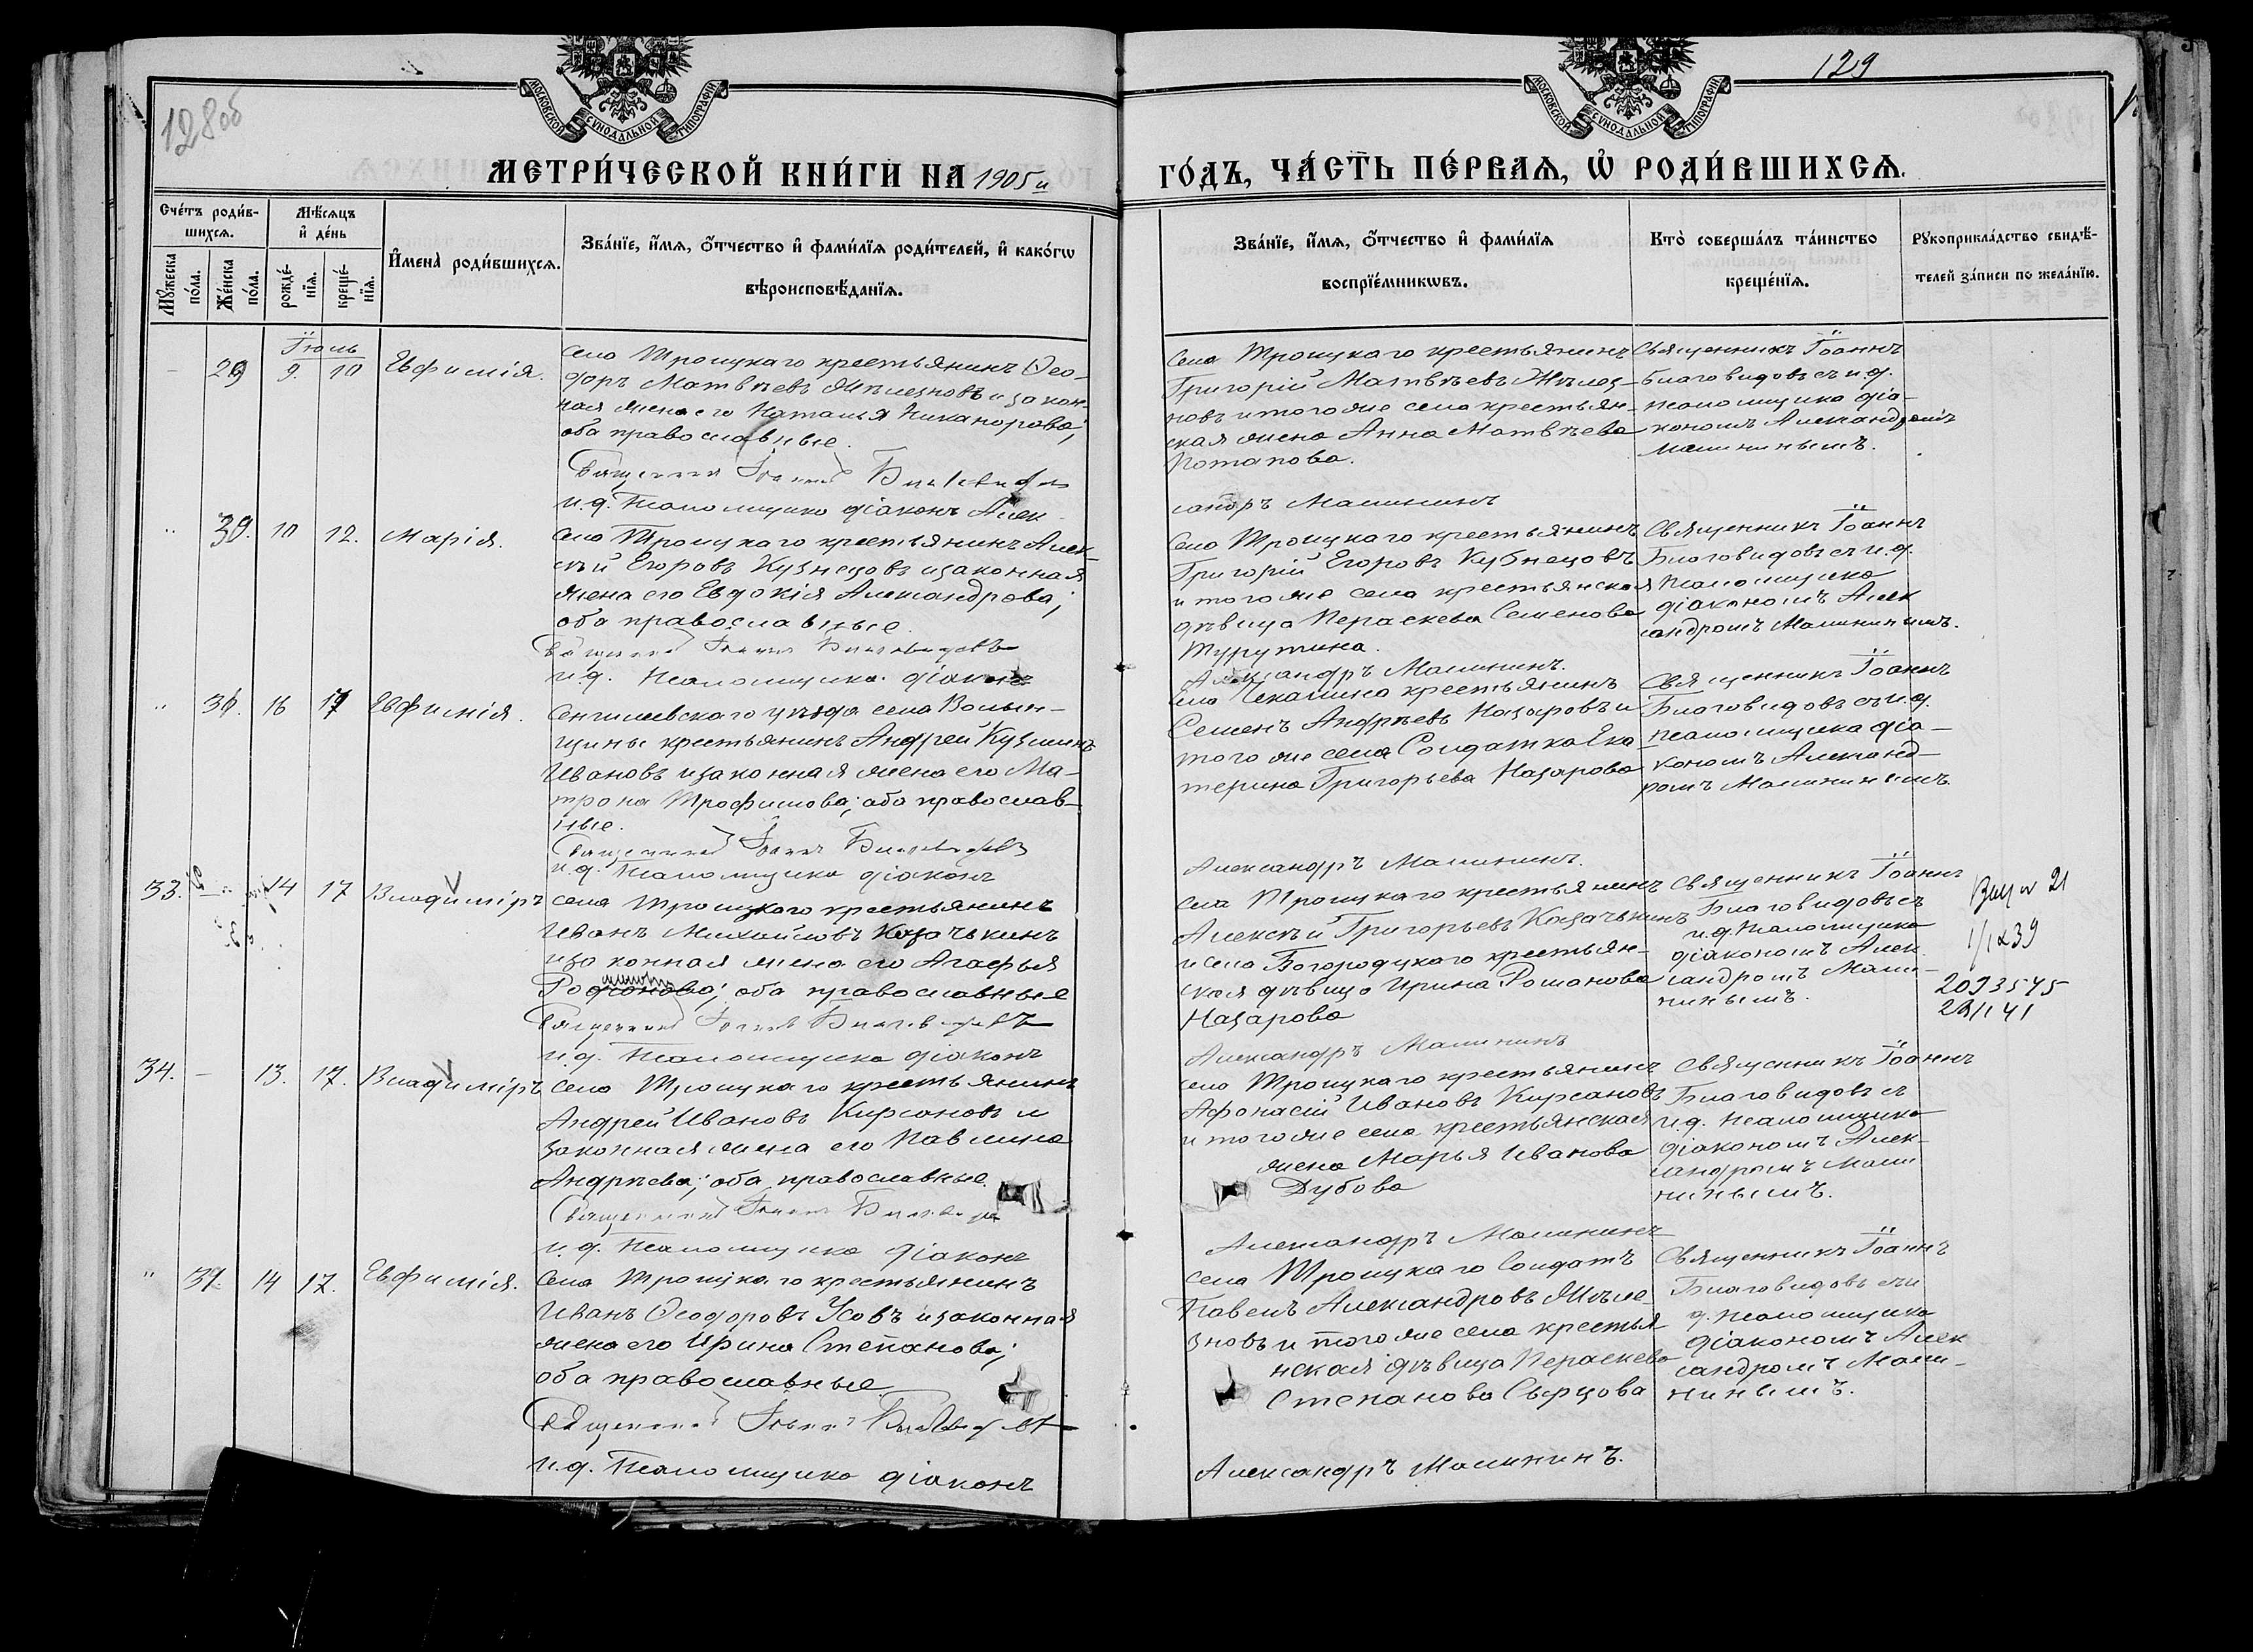 128об
129
МОСКОВСКОЙ СѴНОДАЛЬНОЙ ТИПОГРАФІИ
МОСКОВСКОЙ СѴНОДАЛЬНОЙ ТИПОГРАФІИ
МЕТРИ́ЧЕСКОЙ КНИ́ГИ НА 1905 й
ГО́ДЪ, ЧА́СТЬ ПЕ́РВАѦ, Ѡ҆ РОДИ́ВШИХСѦ.
Сче́тъ роди́в-
шихсѧ.
Мѣ́сѧцъ
и҆ де́нь
Мꙋ́жеска
по́ла.
Же́нска
по́ла.
рожде́-
нїѧ.
креще́-
нїѧ.
И҆мена̀ роди́вшихсѧ.
Зва́нїе, и҆́мѧ, ѻ҆́тчество и҆ фами́лїѧ роди́телей, и҆ како́гѡ
вѣроисповѣ́данїѧ.
Зва́нїе, и҆́мѧ, ѻ҆́тчество и҆ фами́лїѧ
воспрїе́мникѡвъ.
Кто̀ соверша́лъ та́инство
креще́нїѧ.
Рꙋкоприкла́дство свидѣ́-
телей за́писи по жела́нїю.
Іюль
29 9. 10 Евфимія.
Села Троицкаго крестьянинъ Ѳео-
доръ Матвѣевъ Жѣлезновъ и закон-
ная жена его Наталья Никанорова;
оба православные.
Священникъ Іоаннъ Благовидовъ
и.д. псаломщика діаконъ Алек
Села Троицкаго крестьянинъ
Григорій Матвѣевъ Жѣлез-
новъ и того же села крестьян-
ская жена Анна Матвѣева
Потапова.
сандръ Малининъ
Священникъ Іоаннъ
Благовидовъ съ и.д.
псаломщика діа-
кономъ Александромъ
Малининымъ.
" 30. 10 12. Марія.
Села Троицкаго крестьянинъ Алек
сѣй Егоровъ Кузнецовъ и законная
жена его Евдокія Александрова;
оба православные.
Священникъ Іоаннъ Благовидовъ
и.д. псаломщика діаконъ
Села Троицкаго крестьянинъ
Григорій Егоровъ Кузнецовъ
и того же села крестьянская
дѣвица Параскева Семенова
Турутина.
Александръ Малининъ.
Священникъ Іоаннъ
Благовидовъ съ и.д.
псаломщика
діакономъ Алек
сандромъ Малининымъ.
" 31. 16 17 Евфимія.
Сенгилеевскаго уѣзда села Волын-
щины крестьянинъ Андрей Кузминъ
Ивановъ и законная жена его Ма-
трона Трофимова; оба православ-
ные.
Священникъ Іоаннъ Благовидовъ
и.д. псаломщика діаконъ
Села Чекалина крестьянинъ
Семенъ Андрѣевъ Назаровъ и
того же села Солдатка Ека-
терина Григорьева Назарова
Александръ Малининъ.
Священникъ Іоаннъ
Благовидовъ съ и.д.
псаломщика діа-
кономъ Александ-
ромъ Малининымъ.
33. 14 17 Владиміръ
Села Троицкаго крестьянинъ
Иванъ Михайловъ Казачькинъ
и законная жена его Агафья
Родіонова; оба православные
Священникъ Іоаннъ Благовидовъ
и.д. псаломщика діаконъ
Села Троицкаго крестьянинъ
Алексѣй Григорьевъ Казачькинъ
и села Богородцкаго крестьян-
ская дѣвица Ирина Романова
Назарова
Александръ Малининъ
Священникъ Іоаннъ
Благовидовъ съ
и.д. псаломщика
діакономъ Алек
сандромъ Мали-
нинымъ.
2093545
34. - 13. 17. Владиміръ
Села Троицкаго крестьянинъ
Андрей Ивановъ Кирсановъ и
законная жена его Павлина
Андрѣева; оба православные.
Священникъ Іоаннъ Благовидовъ
и.д. псаломщика діаконъ
Села Троицкаго крестьянинъ
Афонасій Ивановъ Кирсановъ
и того же села крестьянская
жена Марья Иванова
Дубова
Александръ Малининъ
Священникъ Іоаннъ
Благовидовъ съ
и.д. псаломщика
діакономъ Алек-
сандромъ Мали
нинымъ.
" 14 17. Евфимія.
Села Троицкаго крестьянинъ
Иванъ Ѳеодоровъ Усовъ и законная
жена его Ирина Степанова;
оба православные.
Священникъ Іоаннъ Благовидовъ
и.д. псаломщика діаконъ
Села Троицкаго Солдатъ
Павелъ Александровъ Жѣле-
зновъ и того же села крестья-
нская дѣвица Параскева
Степанова Сырцова
Александръ Малининъ.
Священникъ Іоаннъ
Благовидовъ съ и
д. псаломщика
діакономъ Алек
сандромъ Мали-
нинымъ.